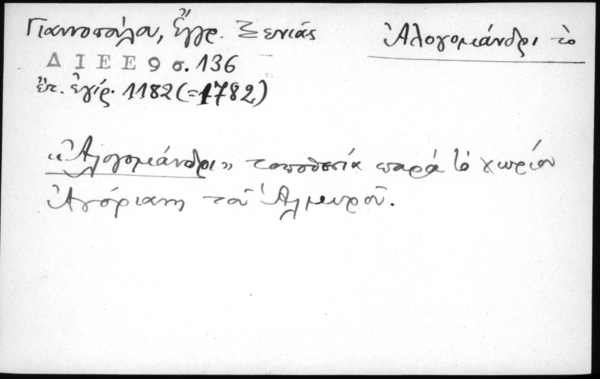 Γιαννοπούλου, Ἔγγρ. Ξενιάς
Ἀλογομάνδρι τό
Δ Ι Ε Ε 9 σ. 136
ἔτ. ἐγίρ. 1182 (=1782)
«Ἀλογομάνδρι» τοποθεσία παρὰ τὸ χωρίον
Ἀγόριανη τοῦ Ἁλμυροῦ.